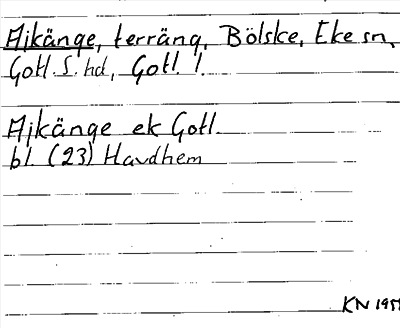 Ajkänge, terräng, Bölske, Eke sn,
Gotl. S. hd, Gotl. l.
Ajkänge ek Gotl.
bl. (23) Havdhem
KN